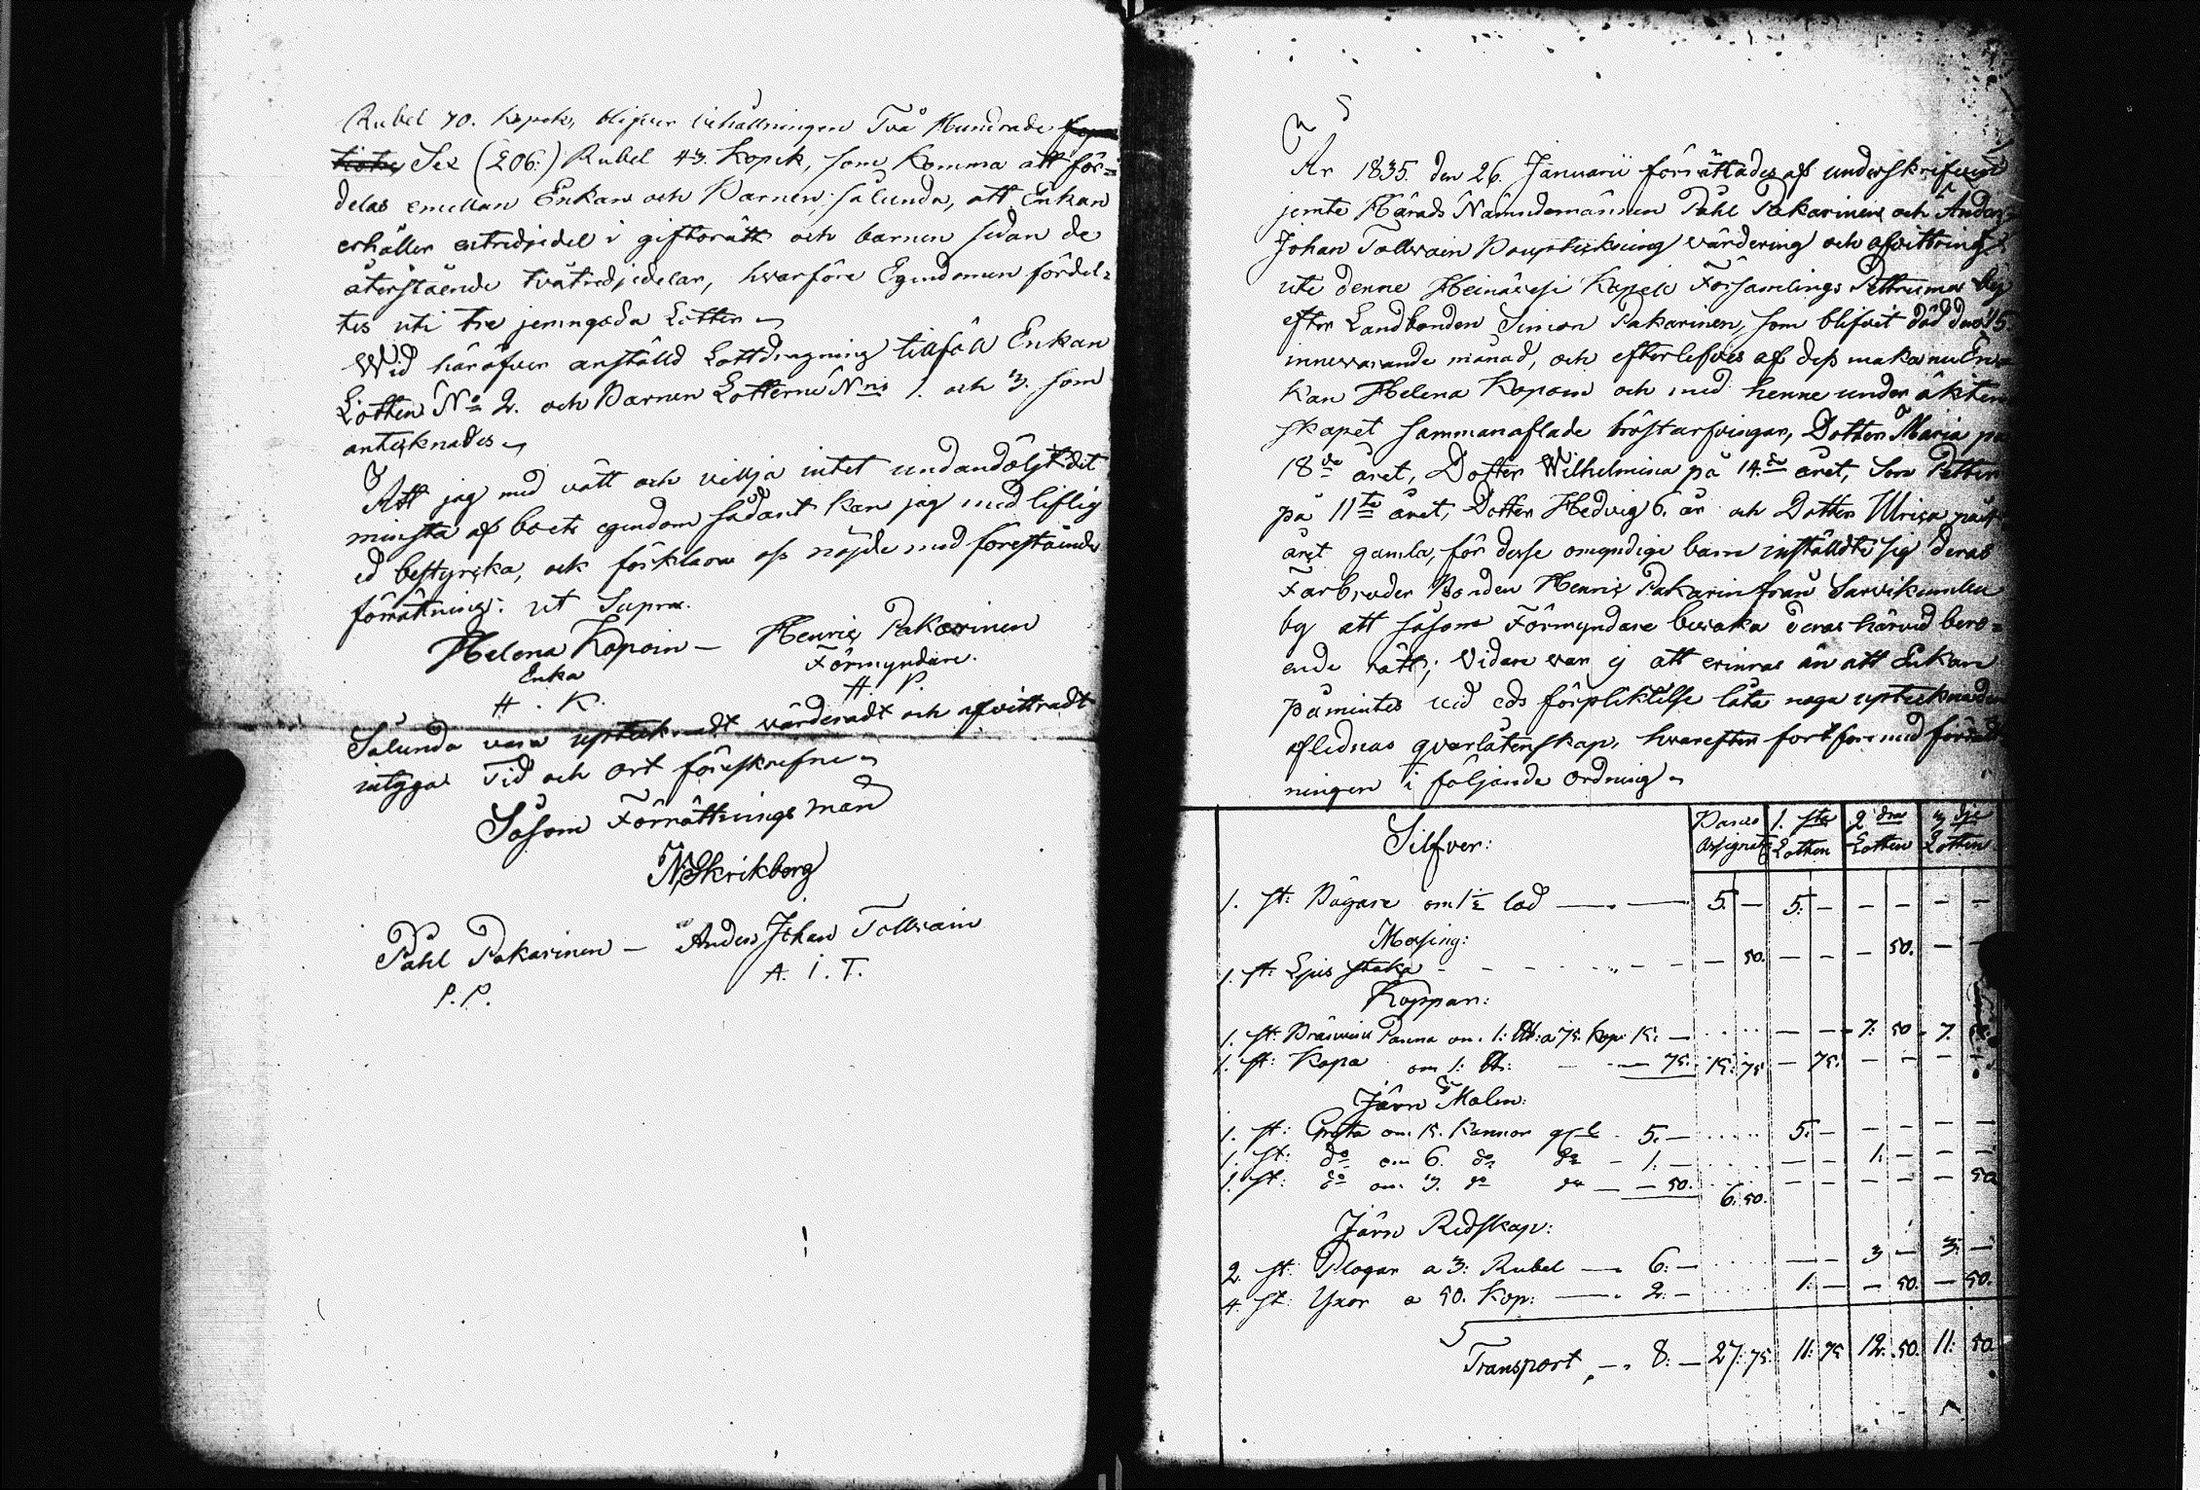 Rubel 70. kopek, blifver behållningen Två Hundrade
Sex (206:) Rubel 43. Kopek, som komma att för=
delas emellan Enkan och Barnen, sålunda, att Enkan
erhåller entredjedel i giftorätt och barnen sedan de
återstående tvåtredjedelar, hvarföre Egendomen fördel=
tes uti tre jemngoda Lotter
Wid häröfver anställd Lottdragning tillföll Enkan
Lotten No 2. och Barnen Lotterne Nris 1. och 3. som
antecknades
Att jag med vätt och vilja intet undandöljt det
minsta af boets egendom sådant kan jag med liflig
ed bestyrcka, och förklara oss nöjde med förestående
förrättning: ut Supra.
Helena Kopoin — Henric Pakarinen
Enka Förmyndare.
H. K. H. P.
Sålunda vara uptecknadt värderadt och afvittradt
intyga Tid och ort föreskrefne
Såsom Förrättnings man
N Skrikberg
Påhl Pakarinen — Anders Johan Tollvain
P. P. A. I. T.
År 1835. den 26. Januarii förrättades af underskrifven
jemte Härads Nämndemännen Påhl Pakarinen och Anders
Johan Tollvain Bouptekning värdering och afvittring
uti denne Heinävesi Kapell Församlings Pettruma by
efter Landbonden Simon Pakarinen, som blifvit död den 15
innevarande månad, och efterlefves af dess maka nu En=
kan Helena Kopoin och med henne under äkten
skapet sammanaflade bröstarfvingar, Dotter Maria på
18de året, Dotter Wilhelmina på 14de året, Son Petter
på 11te året, Dotter Hedvig 6. år och Dotter Ulrica på
året gamla, för desse omyndige barn inställdte sig deras
Farbroder Bonden Henric Pakarin från Sarvikumbu
by att såsom Förmyndare bevaka deras härvid bero=
ende rätt; Vidare var ej att erinras än att Enkan
påmintes vid eds förpliktelse låta noga uptecknade
aflednas qvarlåtenskap, hvarefter fortfors med förrätt
ningen i följande ordning
Silfver: Banco Assignat. 1. sta Lotten 2 dra Lotten 3 dje Lotten
1. st: Bägare om 1½ lod — 5. — 5: — — — — —
Messing:
1. st: Ljus staka — — 50. — — — 50. — —
Koppar:
1. st: Bränvins Panna om 1: ℔: a 75. kop: 15: — — — 7: 50 7. 50
1. st: Kopa om 1: ℔: — 75. 15: 75 — 75. — — — —
Järn Malm:
1. st: Gryta om 15. Kannor gl 5: — 5: — — — — —
1. st: do om 6. do do — 1: — — — 1: — — —
1. st: do om 3. do do — 50. 6: 50. — — — — — 50
Järn Redskap:
2. st: Plogar a 3: Rubel — 6: — — — 3 — 3: —
4. st: Yxor a 50. Kop: — 2: — 1: — — 50. — 50.
Transport — 8: — 27: 75. 11: 75 12. 50. 11: 50